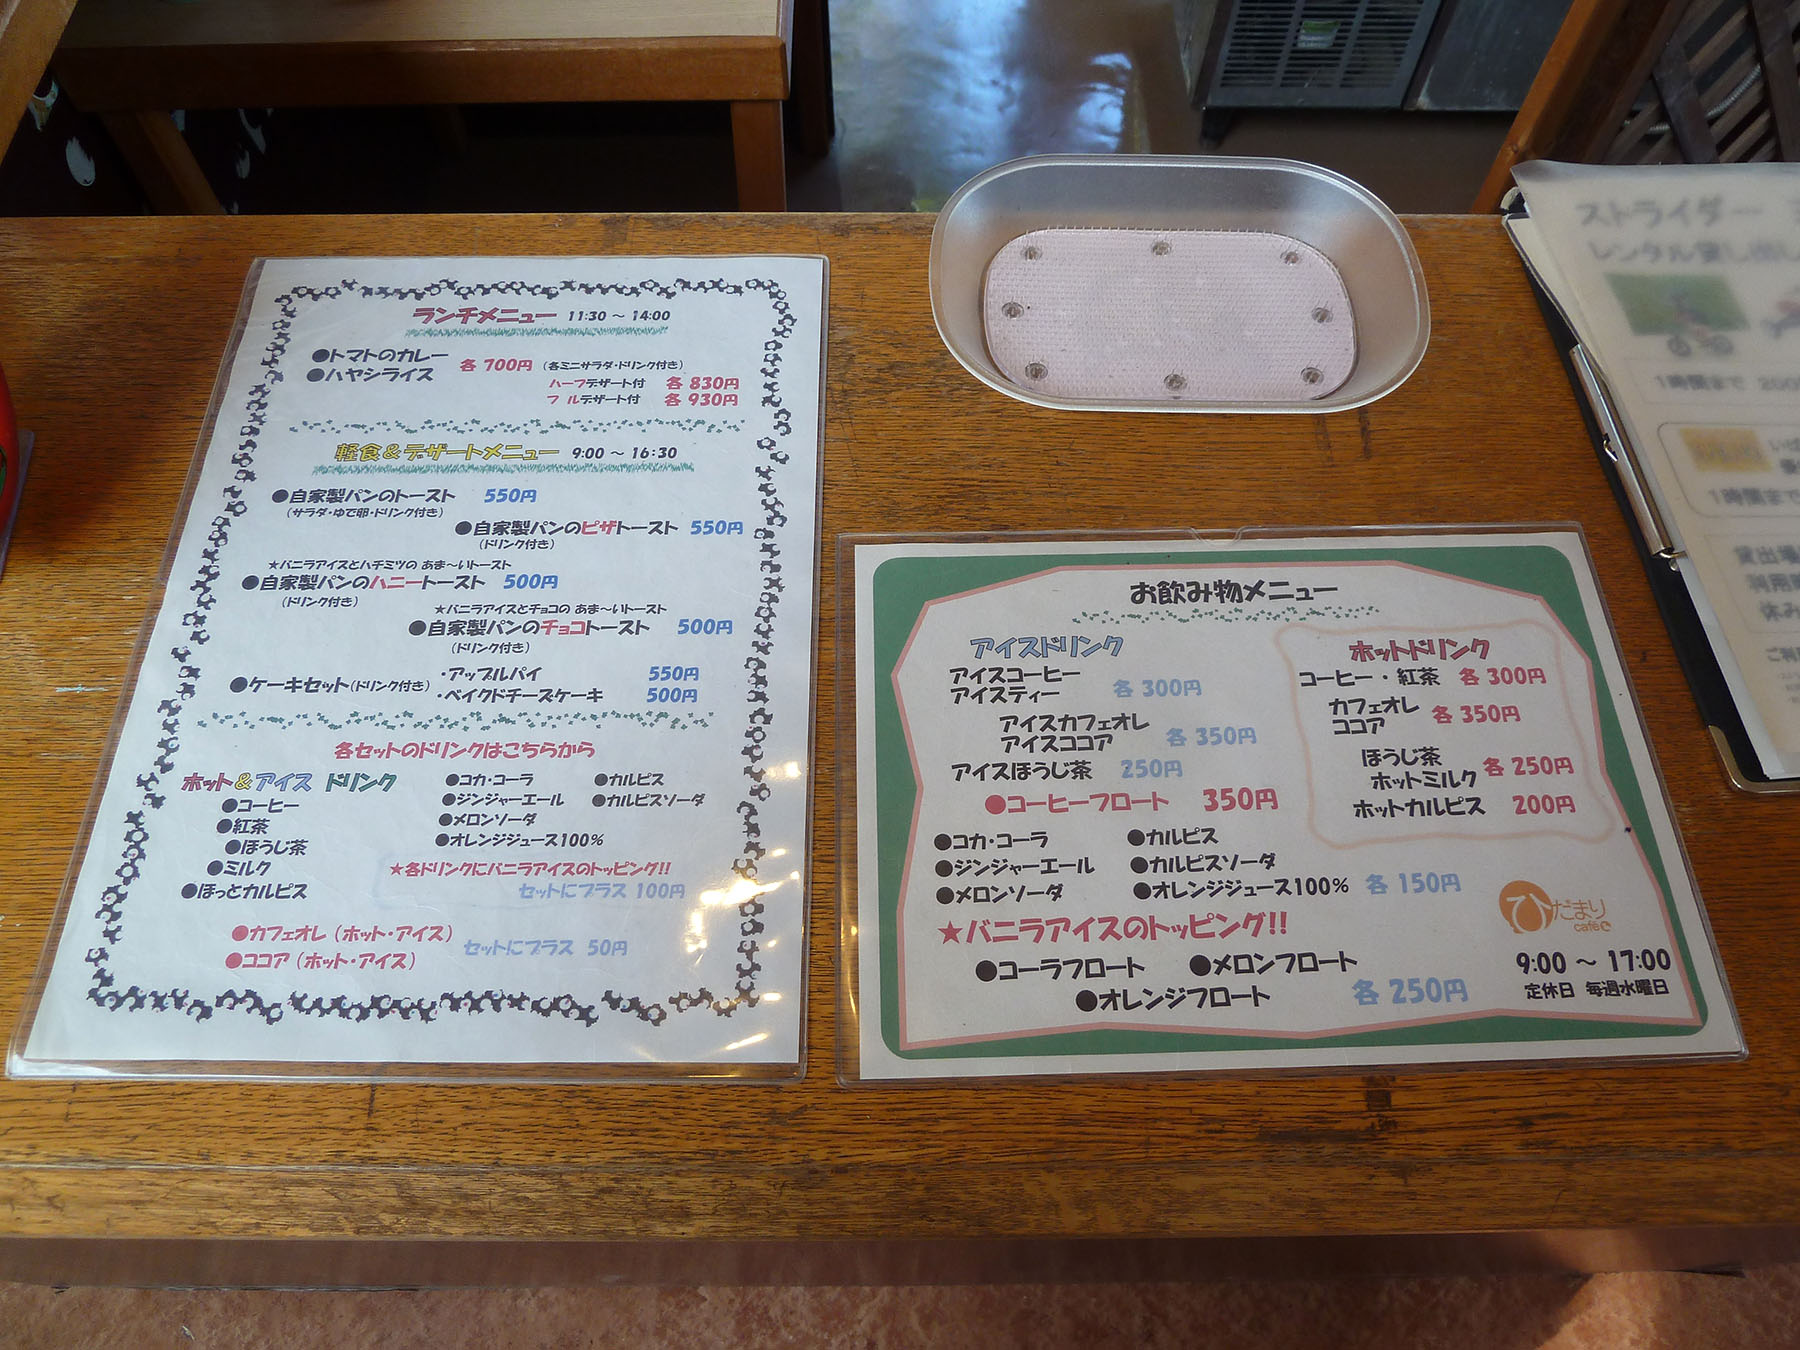 ランチメニュー 11:30 ～ 14:00
●トマトのカレー
●ハヤシライス
各 700円 (各ミニサラダ・ドリンク付き)
ハーフデザート付 各 830円
フルデザート付 各 930円
軽食＆デザートメニュー 9:00 ～ 16:30
●自家製パンのトースト 550円
(サラダ・ゆで卵・ドリンク付き)
●自家製パンのピザトースト 550円
(ドリンク付き)
★バニラアイスとハチミツの あま～いトースト
●自家製パンのハニートースト 500円
(ドリンク付き)
★バニラアイスとチョコの あま～いトースト
●自家製パンのチョコトースト 500円
(ドリンク付き)
●ケーキセット(ドリンク付き)
・アップルパイ 550円
・ベイクドチーズケーキ 500円
各セットのドリンクはこちらから
ホット＆アイス ドリンク
●コーヒー
●紅茶
●ほうじ茶
●ミルク
●ほっとカルピス
●コカ・コーラ
●ジンジャーエール
●メロンソーダ
●オレンジジュース100%
●カルピス
●カルピスソーダ
★各ドリンクにバニラアイスのトッピング!!
セットにプラス 100円
●カフェオレ (ホット・アイス)
●ココア (ホット・アイス)
セットにプラス 50円
お飲み物メニュー
アイスドリンク
アイスコーヒー
アイスティー
各 300円
アイスカフェオレ
アイスココア
各 350円
アイスほうじ茶 250円
●コーヒーフロート 350円
ホットドリンク
コーヒー・紅茶 各 300円
カフェオレ
ココア
各 350円
ほうじ茶
ホットミルク
各 250円
ホットカルピス 200円
●コカ・コーラ
●ジンジャーエール
●メロンソーダ
●カルピス
●カルピスソーダ
●オレンジジュース100%
各 150円
★バニラアイスのトッピング!!
●コーラフロート ●メロンフロート
●オレンジフロート
各 250円
ひだまり
cafe
9:00 ～ 17:00
定休日 毎週水曜日
ストライダー
レンタル貸し出し
1時間まで 200
1時間まで
貸出場
利用
休み